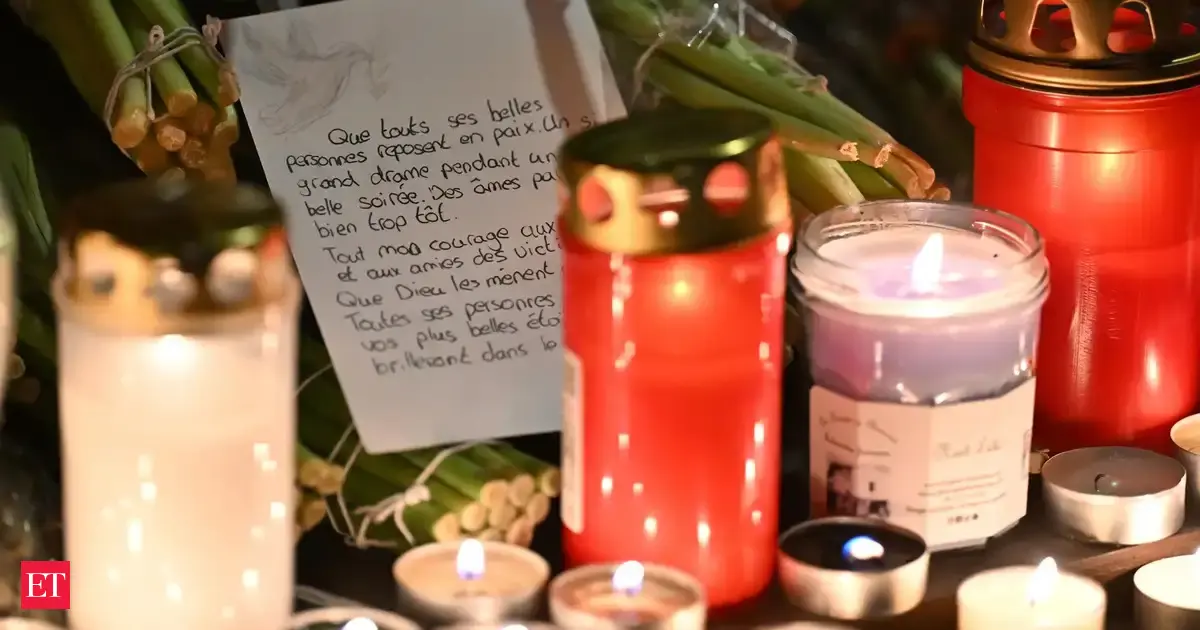 Que touts ses belles
personnes reposent en paix. Un si
grand drame pendant un
belle soirée. Des âmes pa
bien trop tôt.
Tout mon courage aux
et aux amies des vict
Que Dieu les mènent
Toutes ses personnes
vos plus belles étoi
brilleront dans le
ET